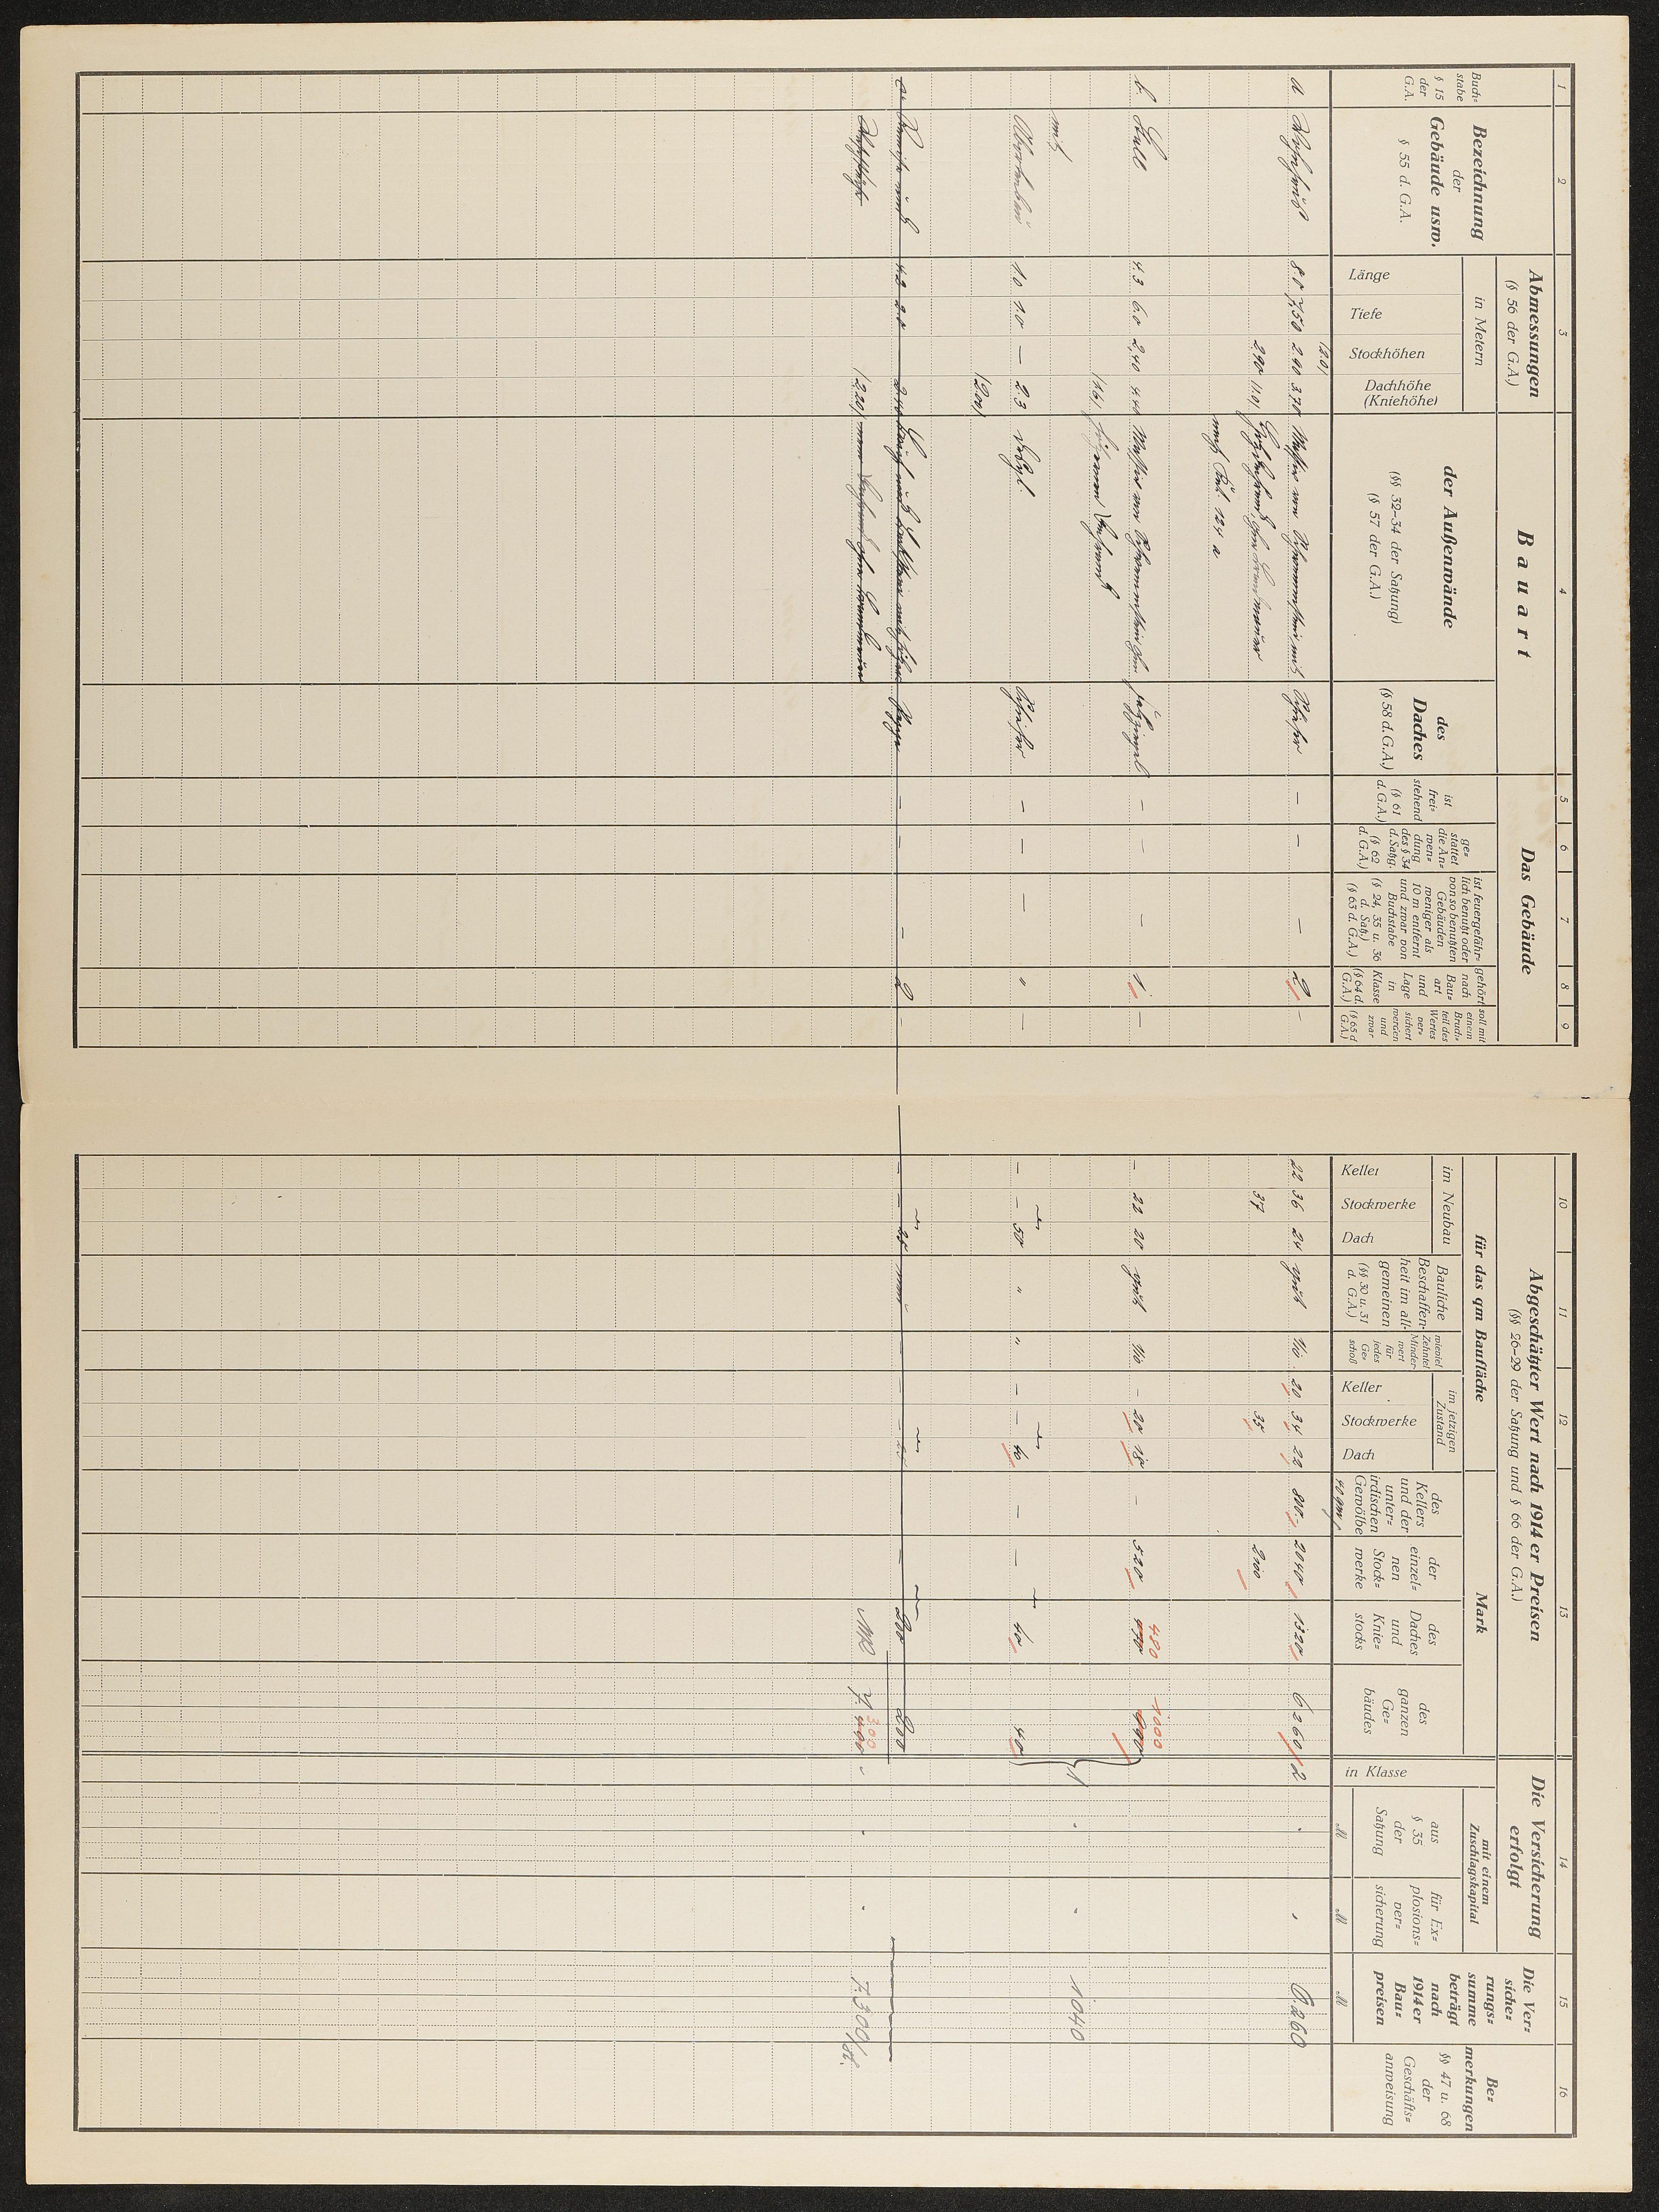 1 2 3 4 5 6 7 8 9
Buch=
stabe
§ 15
der
G.A.
Bezeichnung
der
Gebäude usw.
§ 55 d. G.A.
Abmessungen
(§ 56 der G.A.)
in Metern
Länge
Tiefe
Stockhöhen
Dachhöhe
(Kniehöhe)
Bauart
der Außenwände
(§§ 32–34 der Satzung)
(§ 57 der G.A.)
des
Daches
(§ 58 d. G.A.)
Das Gebäude
ist
frei=
stehend
(§ 61
d. G.A.)
ge=
stattet
die An=
wen=
dung
des § 34
d. Satzg.
(§ 62
d. G.A.)
ist feuergefähr=
lich benutzt oder
von so benutzten
Gebäuden
weniger als
10 m entfernt
und zwar von
Buchstabe
(§ 24, 35 u. 36
d. Satz.)
(§ 63 d. G.A.)
gehört
nach
Bau=
art
und
Lage
in
Klasse
(§ 64 d.
G.A.)
soll mit
einem
Bruch=
teil des
Wertes
ver=
sichert
werden
und
zwar
(§ 65 d
G.A.)
(2.0)
a Wohnhaus 8.0 7.50 2.90 3.70 Massiv von Schwemmstein mit Schiefer — — — 2 —
2.90 (1.0)
nach Bul. 124 a
b. Stall 4.3 6.0 2,40 4.40 Massiv von Schwemmstein ohne Falzziegel — — — 1. —
(1.6)
mit
1.0 1.0 — 2.3 desgl. Schiefer — — — " —
(2.00)
Remise und 4.3 2.0 Pappe — — — 2 —
(2.20)
10 11 12 13 14 15 16
Abgeschätzter Wert nach 1914 er Preisen
(§§ 26–29 der Satzung und § 66 der G.A.)
für das qm Baufläche
im Neubau
Keller
Stockwerke
Dach
Bauliche
Beschaffen=
heit im all=
gemeinen
(§§ 30 u. 31
d. G.A.)
wieviel
Zehntel
Minder=
wert
für
jedes
Ge=
schoß
im jetzigen
Zustand
Keller
Stockwerke
Dach
Mark
des
Kellers
und der
unter=
irdischen
Gewölbe
der
einzel=
nen
Stock=
werke
des
Daches
und
Knie=
stocks
des
ganzen
Ge=
bäudes
Die Versicherung
erfolgt
in Klasse
mit einem
Zuschlagskapital
aus
§ 35
der
Satzung
M
für Ex=
plosions=
ver=
sicherung
M
Die Ver=
siche=
rungs=
summe
beträgt
nach
1914 er
Bau=
preisen
M
Be=
merkungen
§§ 47 u. 68
der
Geschäfts=
anweisung
40 qm/
22 36 24 gut 1/10 20 34 22 800.- 2040 1320 6260 2 6.260
37 35 2100
480 1000
- 22 20 gut 1/10 - 20 18 - 520
1040
- - 50 " " - - 40 — — 40 40
200 200
300
7.300